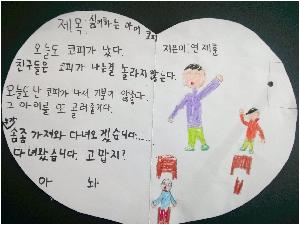 제목: 심퉁하는 아이 코피
지은이: 연제훈
오늘도 코피가 났다.
친구들은 코피가 나는걸 놀라지 않는다.
오늘도 난 코피가 나서 기분이 않좋다.
그 아이를 또 골려줄거다.
솜좀 가져와 다녀오겠습니다.....
다녀왔습니다. 고맙지?
아 놔